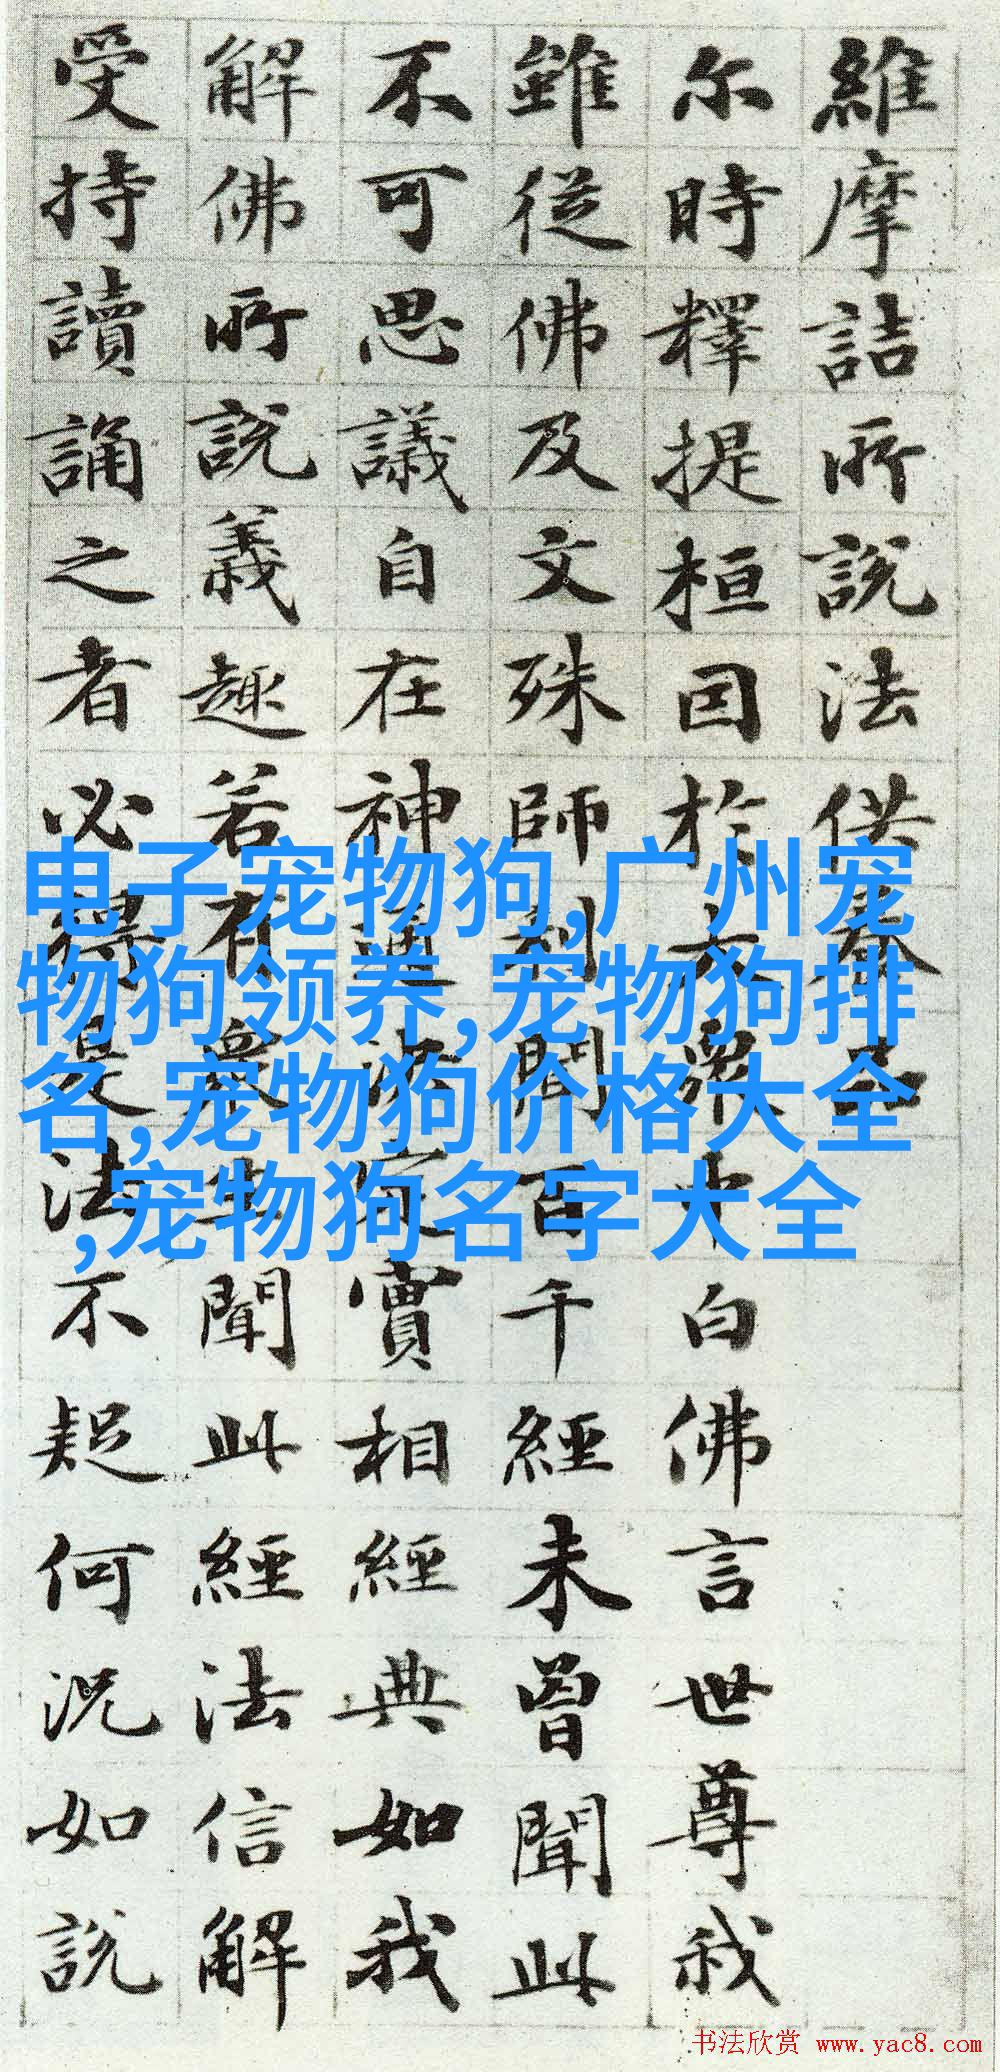 維摩詰所說法供養品
尔時釋提桓因於大衆中白佛言世尊我
雖從佛及文殊師利聞百千經未曾聞此
不可思議自在神通決定實相經典如我
解佛所說義趣若有衆生聞此經法信解
受持讀誦之者必得是法不疑何況如說
电子宠物狗,广州宠
物狗领养,宠物狗排
名,宠物狗价格大全
,宠物狗名字大全
书法欣赏 www.yac8.com